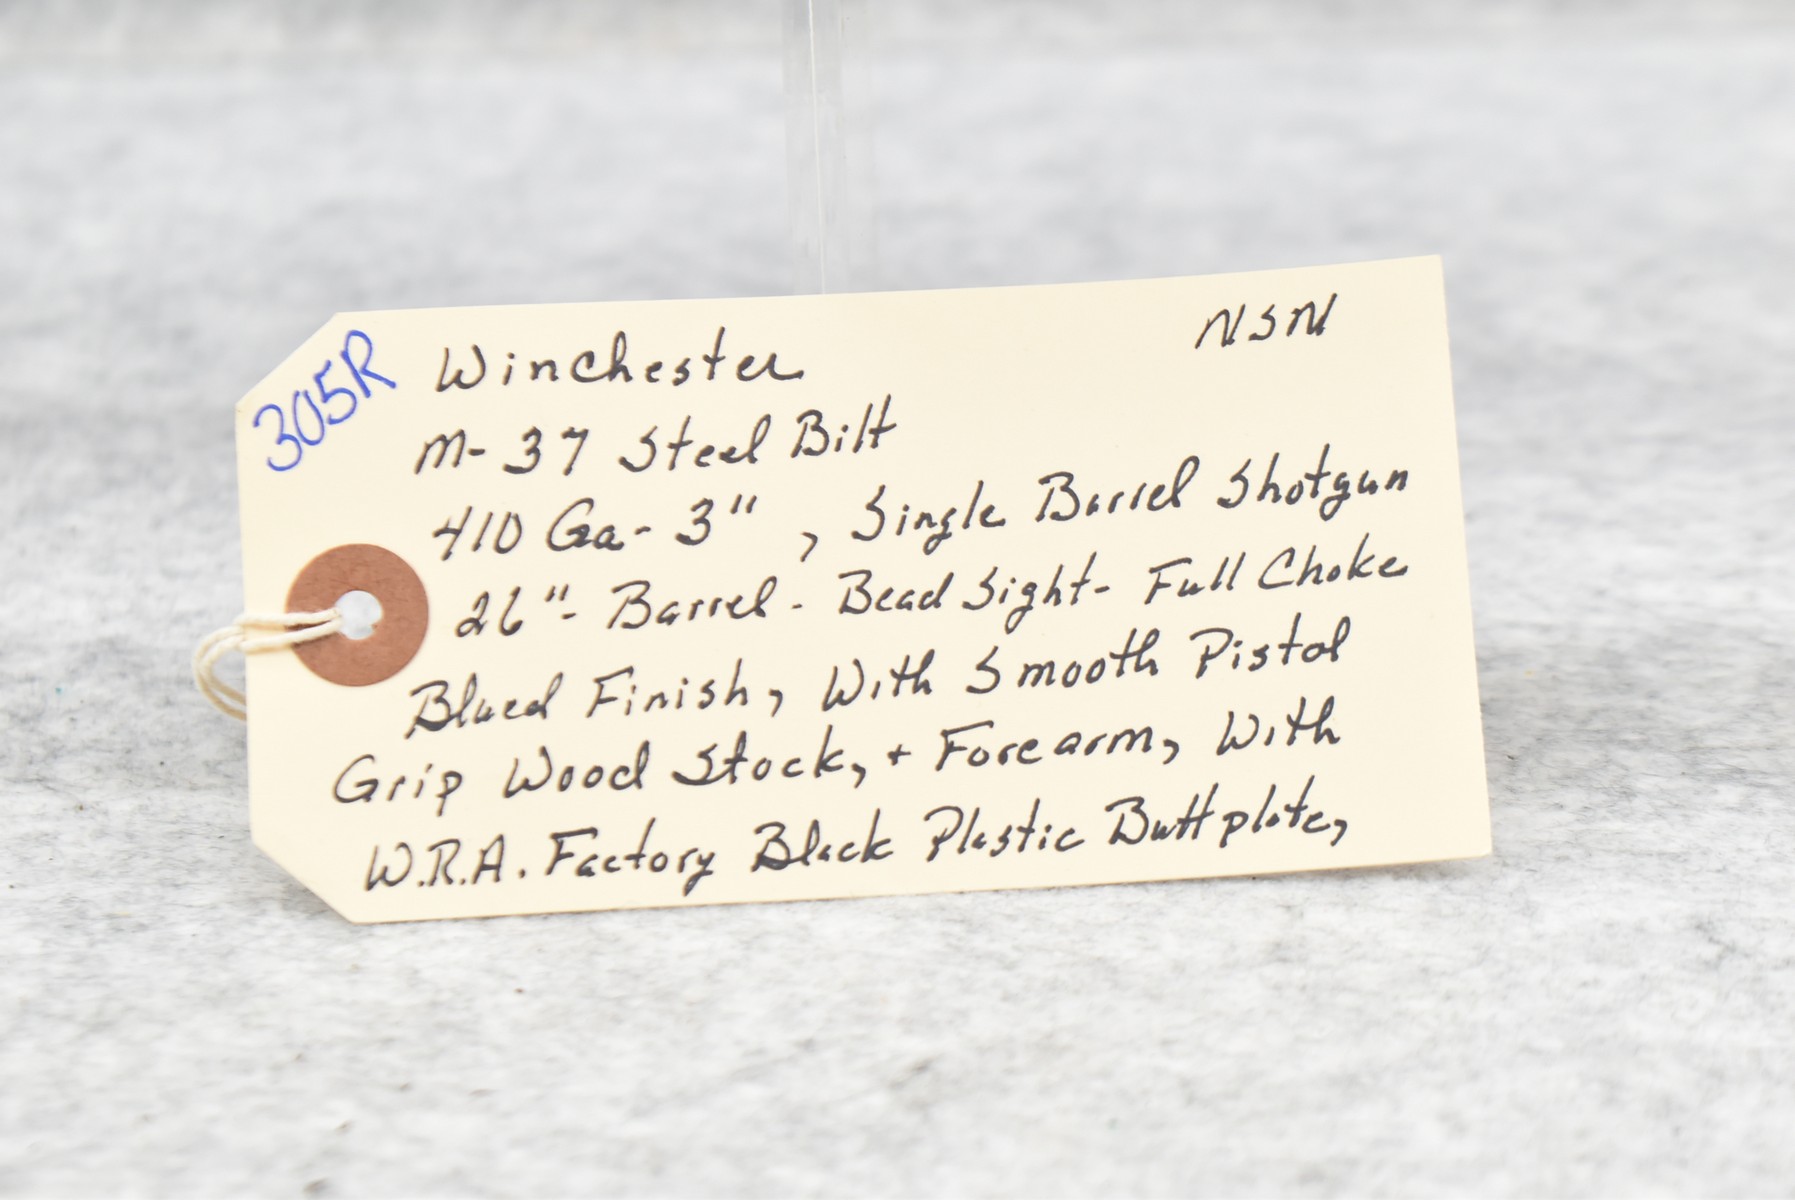 305R
Winchester NSN
M-37 Steel Bilt
410 Ga-3", Single Barrel Shotgun
26"- Barrel - Bead Sight- Full Choke
Blued Finish, With Smooth Pistol
Grip Wood Stock, + Forearm, With
W.R.A. Factory Black Plastic Buttplate,